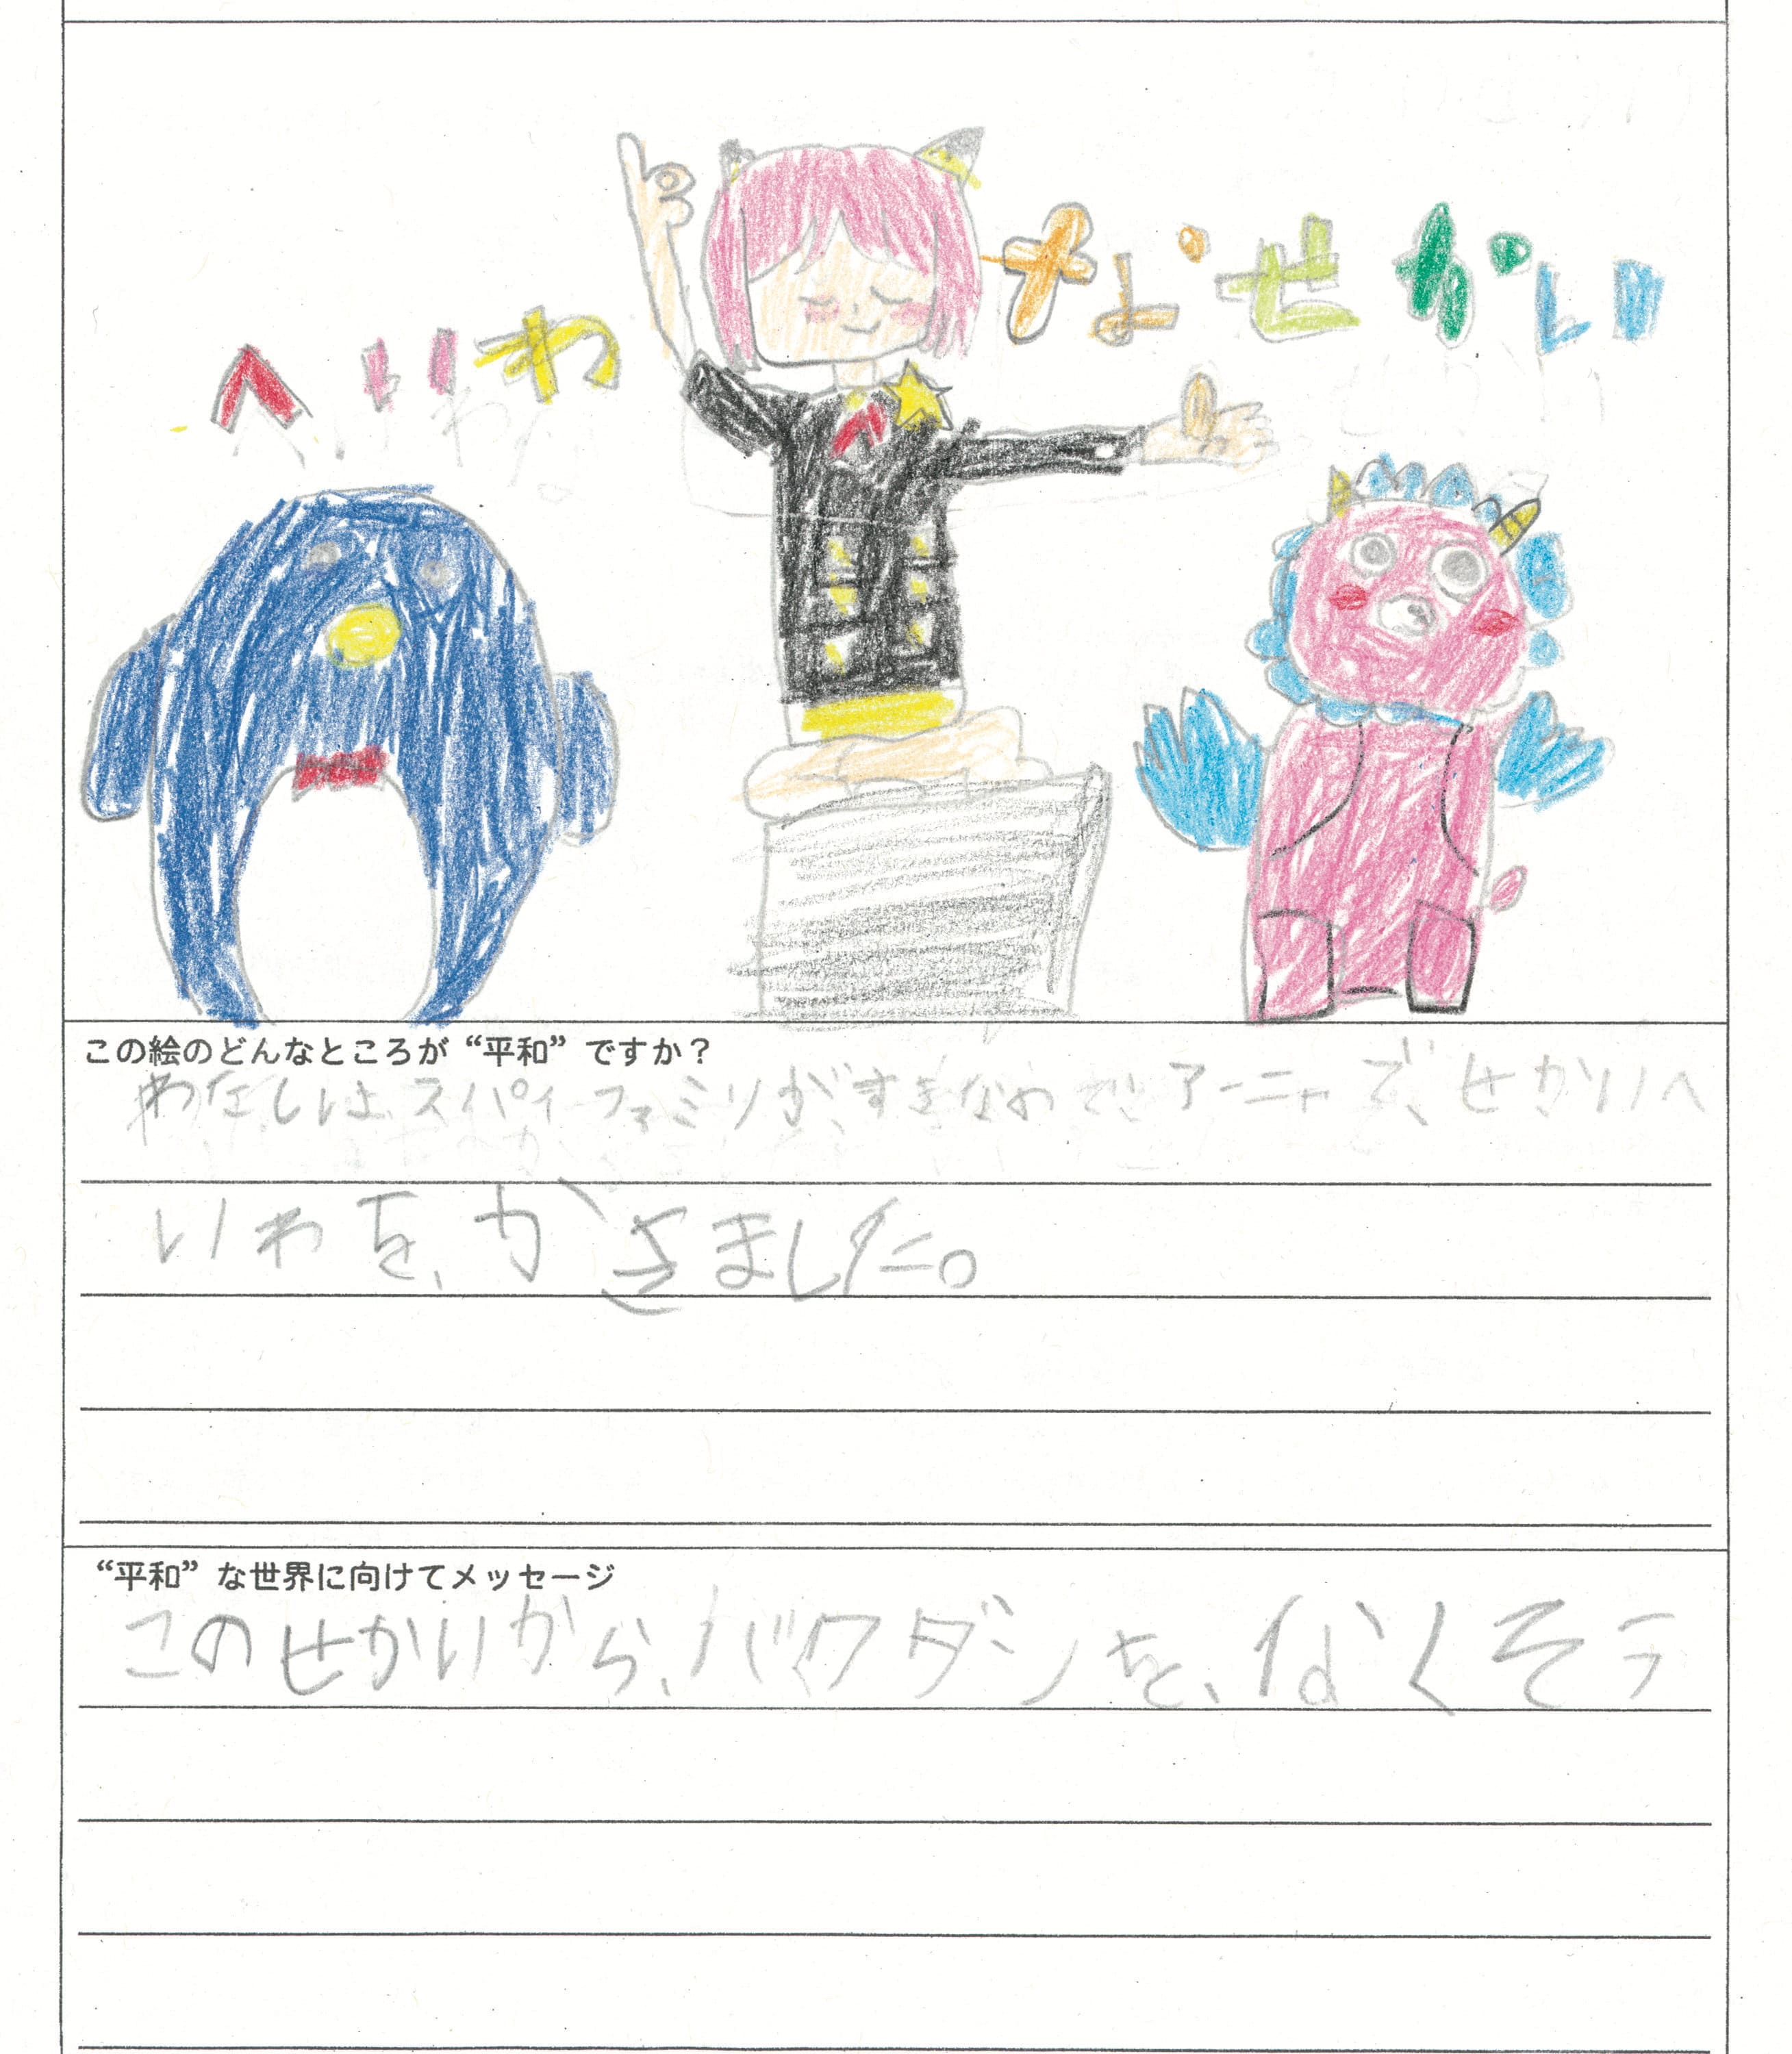 へいわなせかい
この絵のどんなところが“平和”ですか？
わたしは、スパイファミリーが、すきなので、アーニャで、せかいへ
いわを、かきました。
“平和”な世界に向けてメッセージ
このせかいから、バクダンを、なくそう